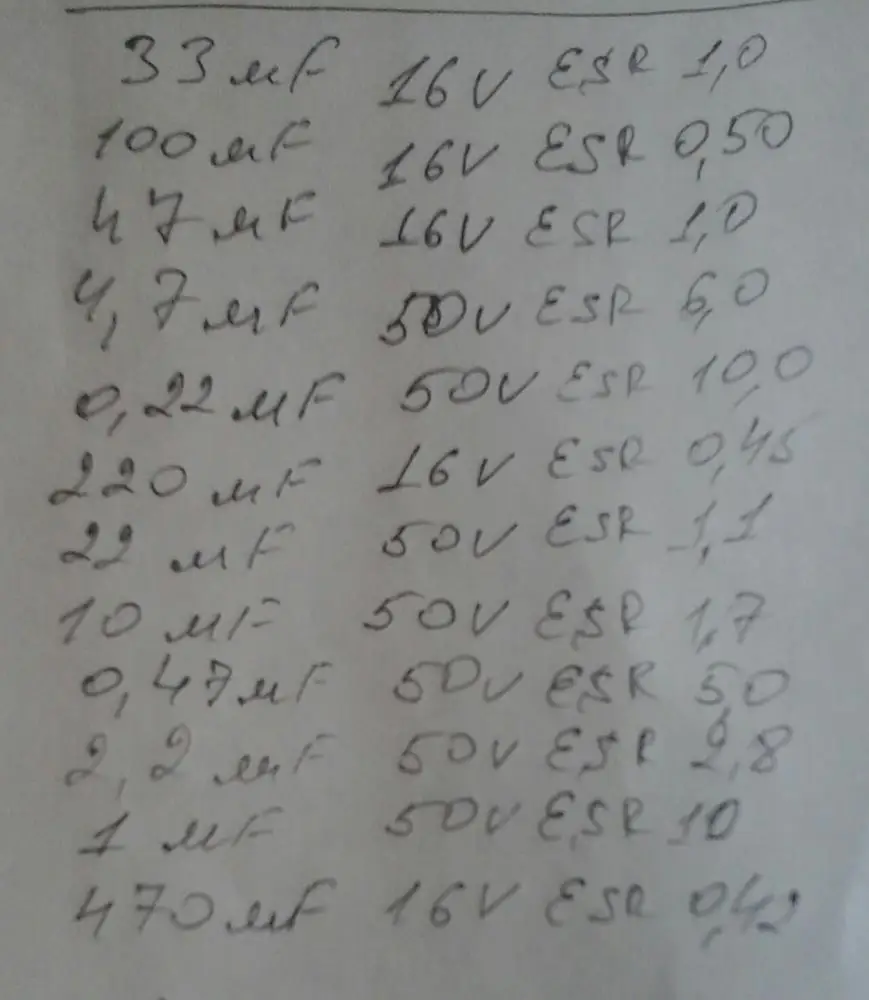 33 мF 16V ESR 1,0
100 мF 16V ESR 0,50
47 мF 16V ESR 1,0
4,7 мF 50V ESR 6,0
0,22 мF 50V ESR 10,0
220 мF 16V ESR 0,45
22 мF 50V ESR 1,1
10 мF 50V ESR 1,7
0,47 мF 50V ESR 5,0
2,2 мF 50V ESR 2,8
1 мF 50V ESR 10
470 мF 16V ESR 0,42